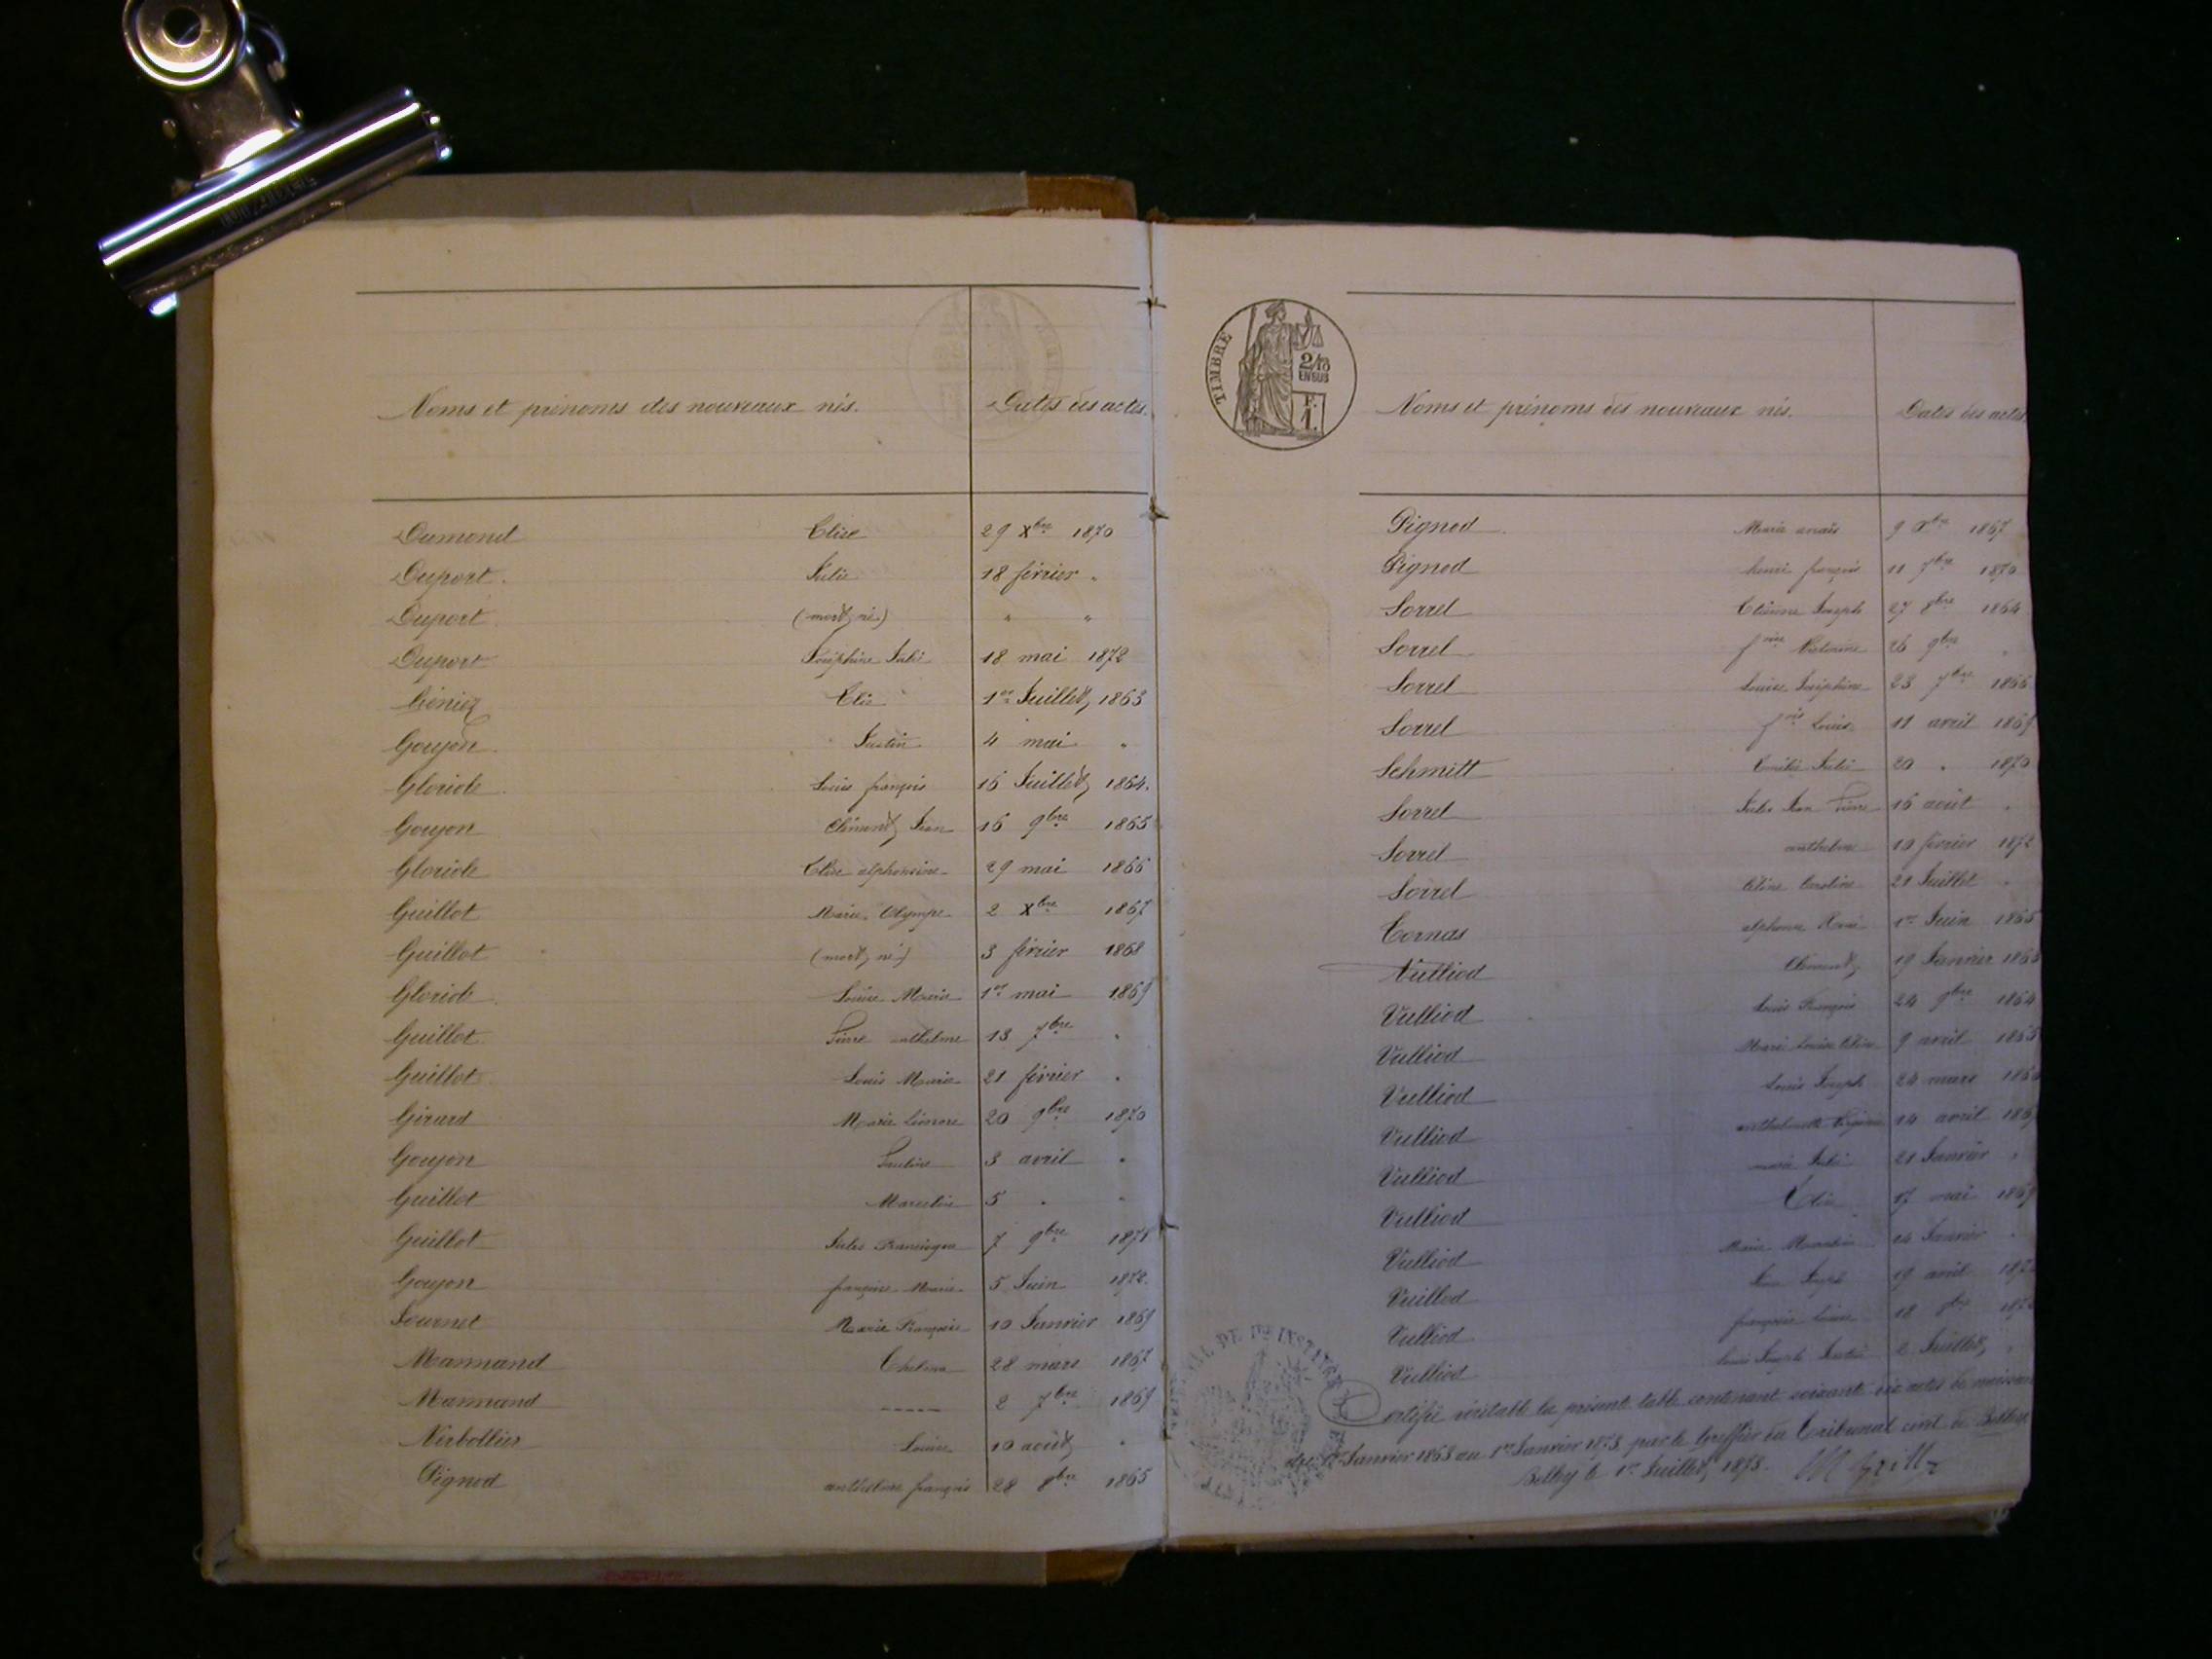 Noms et prénoms des nouveaux nés. Dates des actes.
Dumond Elise 29 Xbre 1870
Duport. Julie 18 février "
Duport (mort né) " "
Duport Joséphine Julie 18 mai 1872
Elie 1er Juillet 1863
Goujon Justin 4 mai "
Gloriod Louis françois 16 Juillet 1864.
Goujon Clément Jean 16 9bre 1865
Gloriod Elise alphonsine 29 mai 1866
Guillot Marie Olympe 2 Xbre 1867
Guillot (mort né) 3 février 1868
Gloriod Louise Marie 1er mai 1869
Guillot Pierre anthelme 13 7bre "
Guillot Louis Marie 21 février "
Girard Marie Léonore 20 9bre 1870
Goujon Pauline 3 avril "
Guillot 5 " "
Guillot Jules 7 9bre
Goujon françoise Marie 5 Juin 1872.
Journet Marie 10 Janvier 1869
Marmand 28 mars 1867
Marmand ----- 2 7bre 1869
Nerbollier Louise 10 août "
Pignod anthelme françois 28 8bre 1865
TIMBRE
2/10
EN SUS
F.
1.
Noms et prénoms des nouveaux nés. Dates des actes.
Pignod Marie anaïs 9 1867
Pignod henri françois 11 7bre 1870
Sorrel Etienne Joseph 27 8bre 1864
Sorrel 26 9bre "
Sorrel Louise Joséphine 23 7bre 1866
Sorrel Louis 11 avril 1869
Schmitt Julie 20 " 1870
Sorrel Jules Jean Pierre 16 août "
Sorrel anthelme 10 février 1872
Sorrel Céline Caroline 21 Juillet "
Cornas alphonse 1er Juin 1865
Vulliod Clément 19 Janvier 1863
Vulliod Louis François 24 9bre 1864
Vulliod Marie Louise 9 avril 1865
Vulliod Louis Joseph 24 mars
Vulliod anthelmette 14 avril
Vulliod marie Julie 21 Janvier "
Vulliod Elie 17 mai 1869
Vulliod Marie 14 Janvier "
Vuillod Joseph 19 avril
Vulliod françoise 18 8bre
Vulliod Louis Joseph 2 Juillet "
Certifié véritable la présente table contenant soixante actes de naissance
du 1er Janvier 1863 au 1er Janvier 1873 par le Greffier du Tribunal civil de Belley
Belley le 1er Juillet 1873.
DE 1re INSTANCE